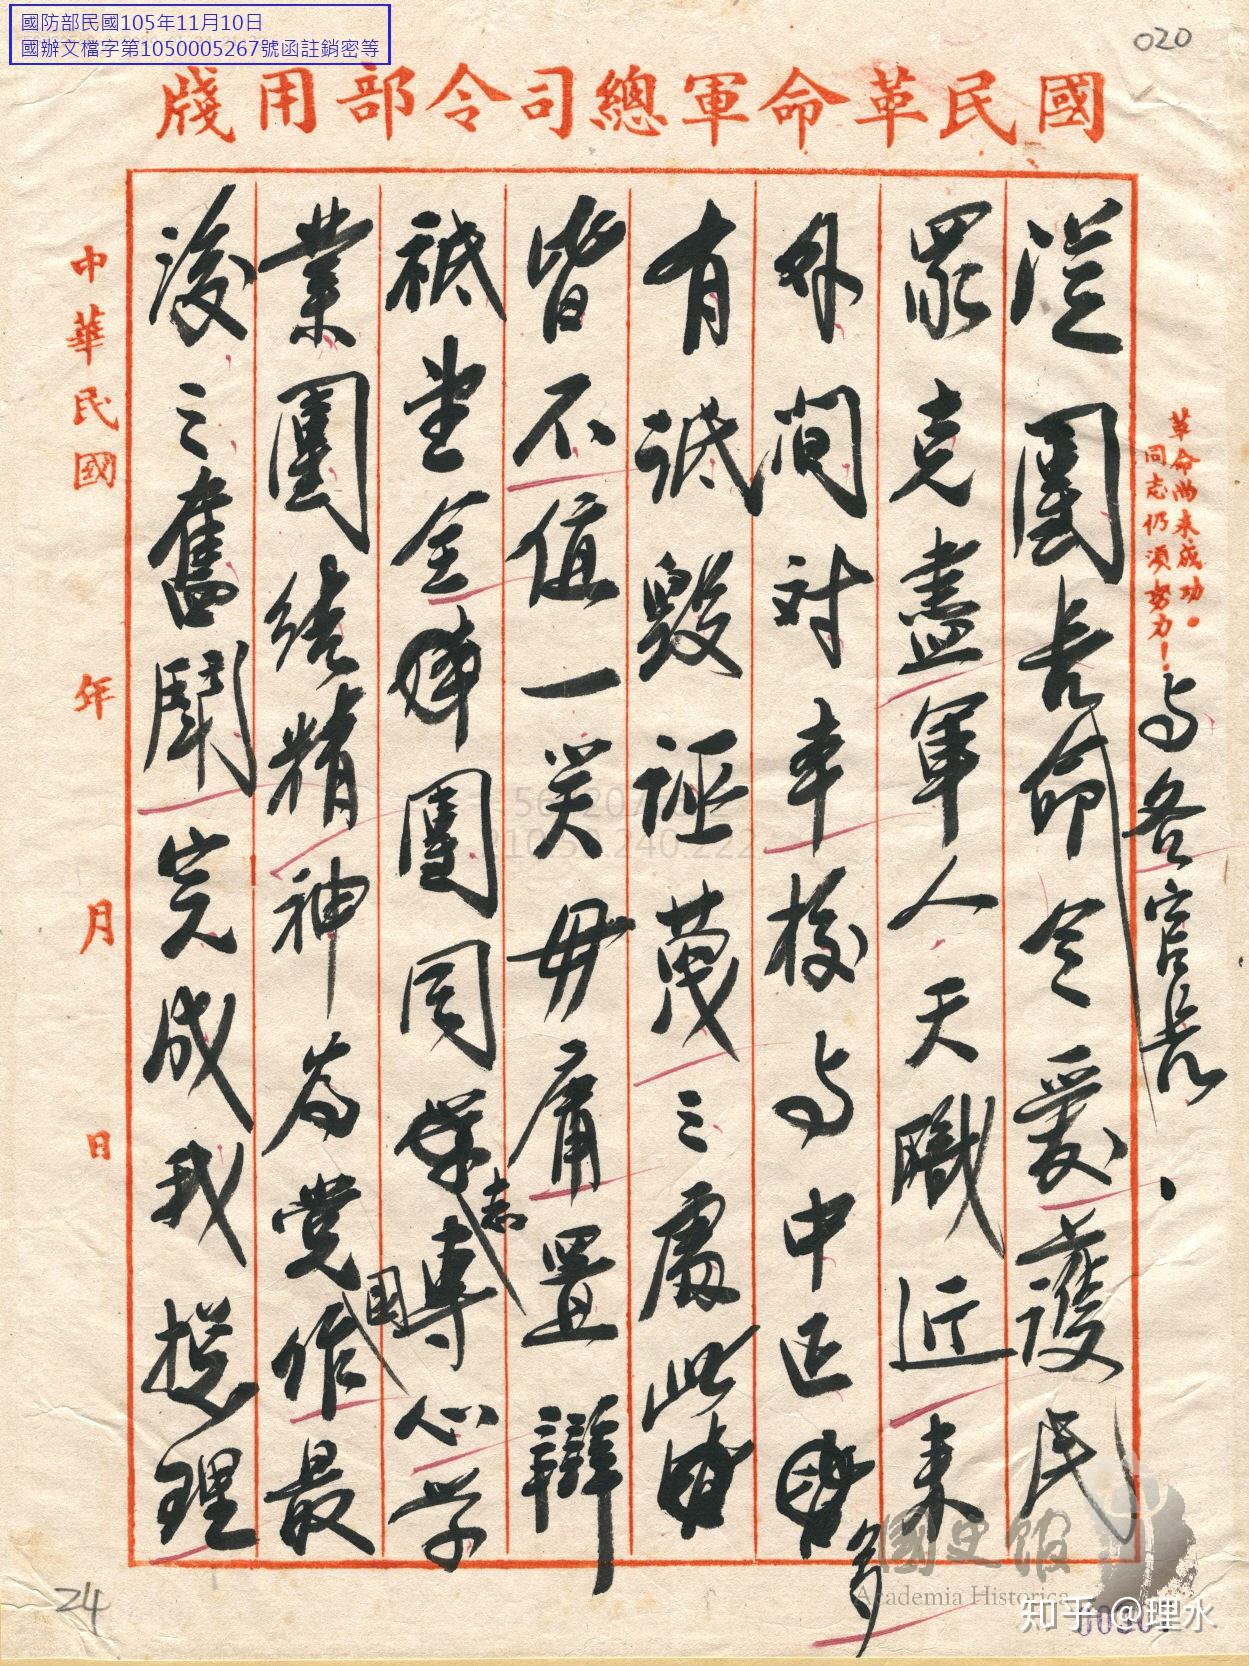 國防部民國105年11月10日
國辦文檔字第1050005267號函註銷密等
020
國民革命軍總司令部用牋
革命尚未成功。
同志仍須努力！
與各官長、
從團長命令愛護民
眾克盡軍人天職近來
外間對本校與中正多
有詆毀誣蔑之處此
皆不值一笑毋庸置辯
祗望全團同志專心學
業團結精神為黨國作最
後之奮鬪完成我總理
中華民國 年 月 日
國史館
Academia Historica
知乎 @理水
24